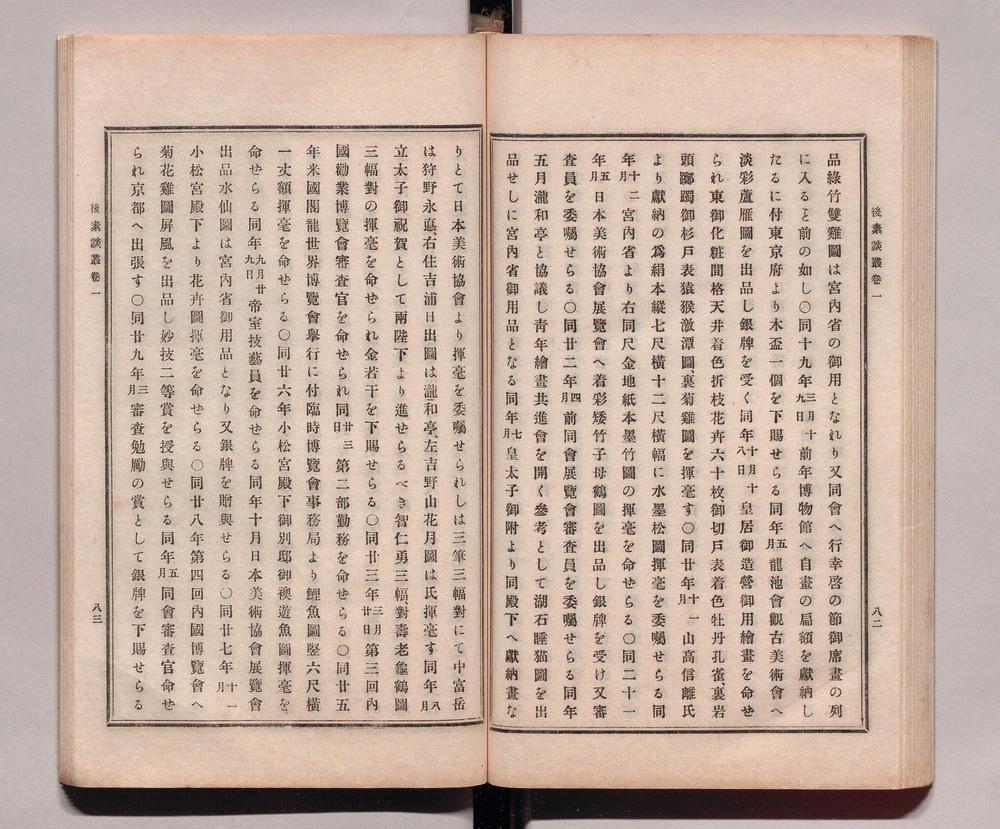 後素談叢卷一
八二
品綠竹雙雞圖は宮內省の御用となれり又同會へ行幸啓の節御席畫の列
に入ると前の如し〇同十九年三月十九日前年博物館へ自畫の扁額を獻納し
たるに付東京府より木盃一個を下賜せらる同年五月龍池會觀古美術會へ
淡彩蘆雁圖を出品し銀牌を受く同年十月十八日皇居御造營御用繪畫を命せ
られ東御化粧間格天井着色折枝花卉六十枚、御切戶表着色牡丹孔雀、裏岩
頭躑躅御杉戶表猿猴激潭圖、裏菊雞圖を揮毫す〇同廿年十一月山高信離氏
より獻納の爲絹本縱七尺橫十二尺橫幅に水墨松圖揮毫を委囑せらる同
年十二月宮內省より右同尺金地紙本墨竹圖の揮毫を命せらる〇同二十一
年五月日本美術協會展覽會へ着彩矮竹子母鶴圖を出品し銀牌を受け又審
查員を委囑せらる〇同廿二年四月前同會展覽會審查員を委囑せらる同年
五月瀧和亭と協議し靑年繪畫共進會を開く參考として湖石睡猫圖を出
品せしに宮內省御用品となる同年七月皇太子御附より同殿下へ獻納畫な
りとて日本美術協會より揮毫を委囑せられしは三筆三幅對にて中富岳
は狩野永悳、右住吉浦日出圖は瀧和亭、左吉野山花月圖は氏揮毫す同年八月
立太子御祝賀として兩陛下より進せらるべき智仁勇三幅對壽老龜鶴圖
三幅對の揮毫を命せられ金若干を下賜せらる〇同廿三年三月廿日第三回內
國勸業博覽會審查官を命せられ同廿三日第二部勤務を命せらる〇同廿五
年米國閣龍世界博覽會擧行に付臨時博覽會事務局より鯉魚圖竪六尺橫
一丈額揮毫を命せらる〇同廿六年小松宮殿下御別邸御襖遊魚圖揮毫を
命せらる同年九月廿九日帝室技藝員を命せらる同年十月日本美術協會展覽會
出品水仙圖は宮內省御用品となり又銀牌を贈與せらる〇同廿七年十一月
小松宮殿下より花卉圖揮毫を命せらる〇同廿八年第四回內國博覽會へ
菊花雞圖屛風を出品し妙技二等賞を授與せらる同年五月同會審查官命せ
られ京都へ出張す〇同廿九年三月審查勉勵の賞として銀牌を下賜せらる
後素談叢卷一
八三